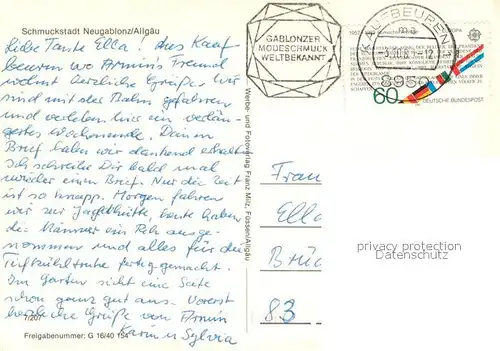 Schmuckstadt Neugablonz/Allgäu
Liebe Tante Ella! Aus Kauf-
beuren wo Armin's Freund
wohnt herzliche Grüße. Wir
sind mit der Bahn gefahren
und verleben hier ein verlän-
gertes Wochenende. Deinen
Brief haben wir dankend erhalten
Ich schreibe Dir bald mal
wieder einen Brief. Nur die Zeit
ist so knapp. Morgen fahren
wir zur Jagdhütte, heute haben
die Männer ein Reh ausge-
nommen und alles für die
Tiefkühltruhe fertig gemacht.
Im Garten sieht eine Seite
schon ganz gut aus. Vorerst
herzliche Grüße von Armin
Karin u Sylvia
7/207
Freigabenummer: G 16/40 154
Werbe- und Fotoverlag Franz Milz, Füssen/Allgäu
GABLONZER
MODESCHMUCK
WELTBEKANNT
KAUFBEUREN 1
8950
1957
EUROPA
CEPT
60
DEUTSCHE BUNDESPOST
Frau
Ella
Brüc
83
privacy protection
Datenschutz